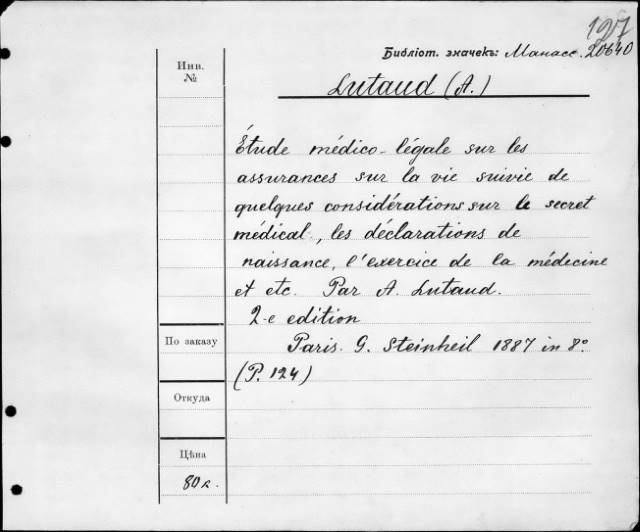 127
Библіот. значекъ: Манасс. 20640
Инв. №
Lutaud (A.)
Étude médico-légale sur les
assurances sur la vie suivie de
quelques considérations sur le secret
médical, les déclarations de
naissance, l'exercice de la médecine
et etc. Par A. Lutaud.
2-e edition
Paris. G. Steinheil 1887 in 8º
(P. 124)
По заказу
Откуда
Цѣна
80 к.